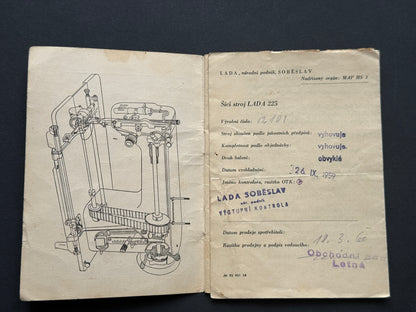 LADA, národní podnik, SOBĚSLAV
Nadřízený orgán: MAP HS 1
Šicí stroj LADA 225
Výrobní číslo:
Stroj zkoušen podle jakostních předpisů: vyhovuje
Kompletnost podle objednávky: vyhovuje.
Druh balení: obvyklé
Datum vyskladnění: 26. IX. 1959
Jméno kontrolora, razítko OTK:
LADA SOBĚSLAV
nár. podnik
VÝSTUPNÍ KONTROLA
Datum prodeje spotřebiteli: 10. 3. 60
Razítko prodejny a podpis vedoucího:
Obchodní
Letná